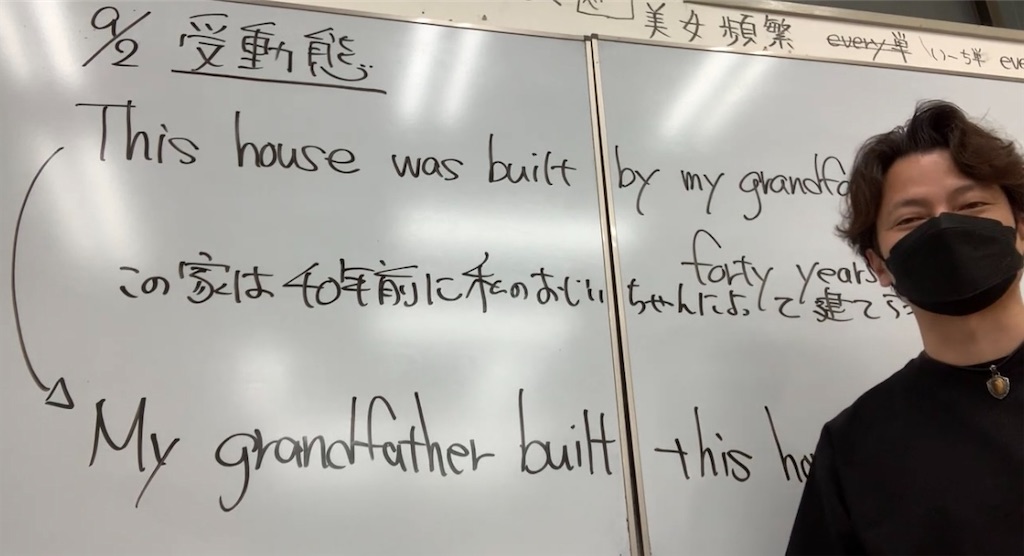 美女頻繁 every単 いーち単 eve
9/2 受動態
This house was built by my grandfa
forty years
この家は40年前に私のおじいちゃんによって建てら
My grandfather built this ho